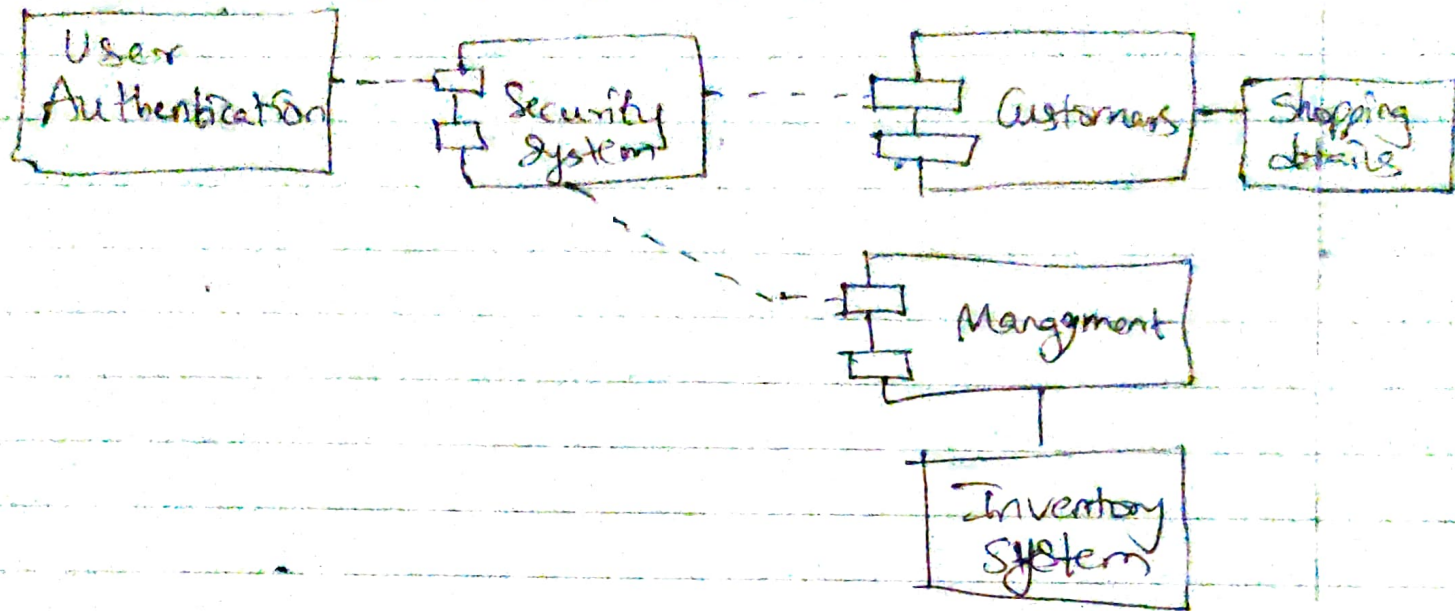 User
Authentication
Security
System
Customars
Shopping
details
Managment
Inventory
System